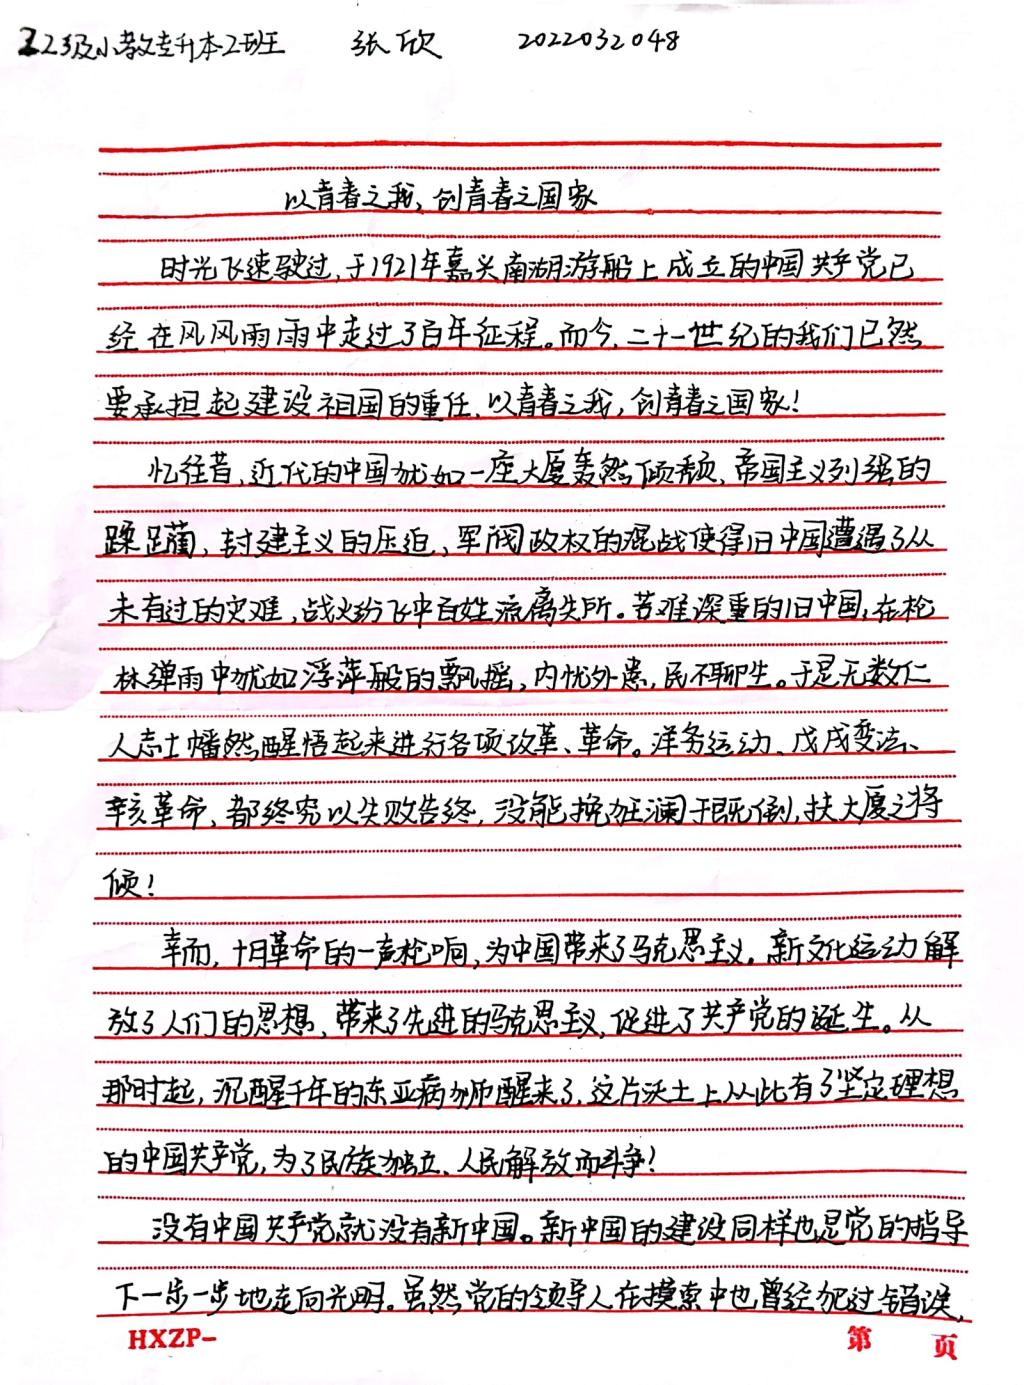 22级小教专升本2班 张欣 2022032048
以青春之我，创青春之国家
时光飞速驶过，于1921年嘉兴南湖游船上成立的中国共产党已
经在风风雨雨中走过了百年征程。而今，二十一世纪的我们已然
要承担起建设祖国的重任，以青春之我，创青春之国家！
忆往昔，近代的中国犹如一座大厦轰然倾颓，帝国主义列强的
蹂躏，封建主义的压迫，军阀政权的混战使得旧中国遭遇了从
未有过的灾难，战火纷飞中百姓流离失所。苦难深重的旧中国，在枪
林弹雨中犹如浮萍般的飘摇，内忧外患，民不聊生。于是无数仁
人志士幡然醒悟起来进行各项改革、革命。洋务运动、戊戌变法、
辛亥革命，都终究以失败告终，没能挽狂澜于既倒，扶大厦之将
倾！
幸而，十月革命的一声枪响，为中国带来了马克思主义。新文化运动解
放了人们的思想，带来了先进的马克思主义，促进了共产党的诞生。从
那时起，沉醒千年的东亚病狮醒来了，这片沃土上从此有了坚定理想
的中国共产党，为了民族独立、人民解放而斗争！
没有中国共产党就没有新中国。新中国的建设同样也是党的指导
下一步一步地走向光明。虽然党的领导人在摸索中也曾经犯过错误，
HXZP-
第 页